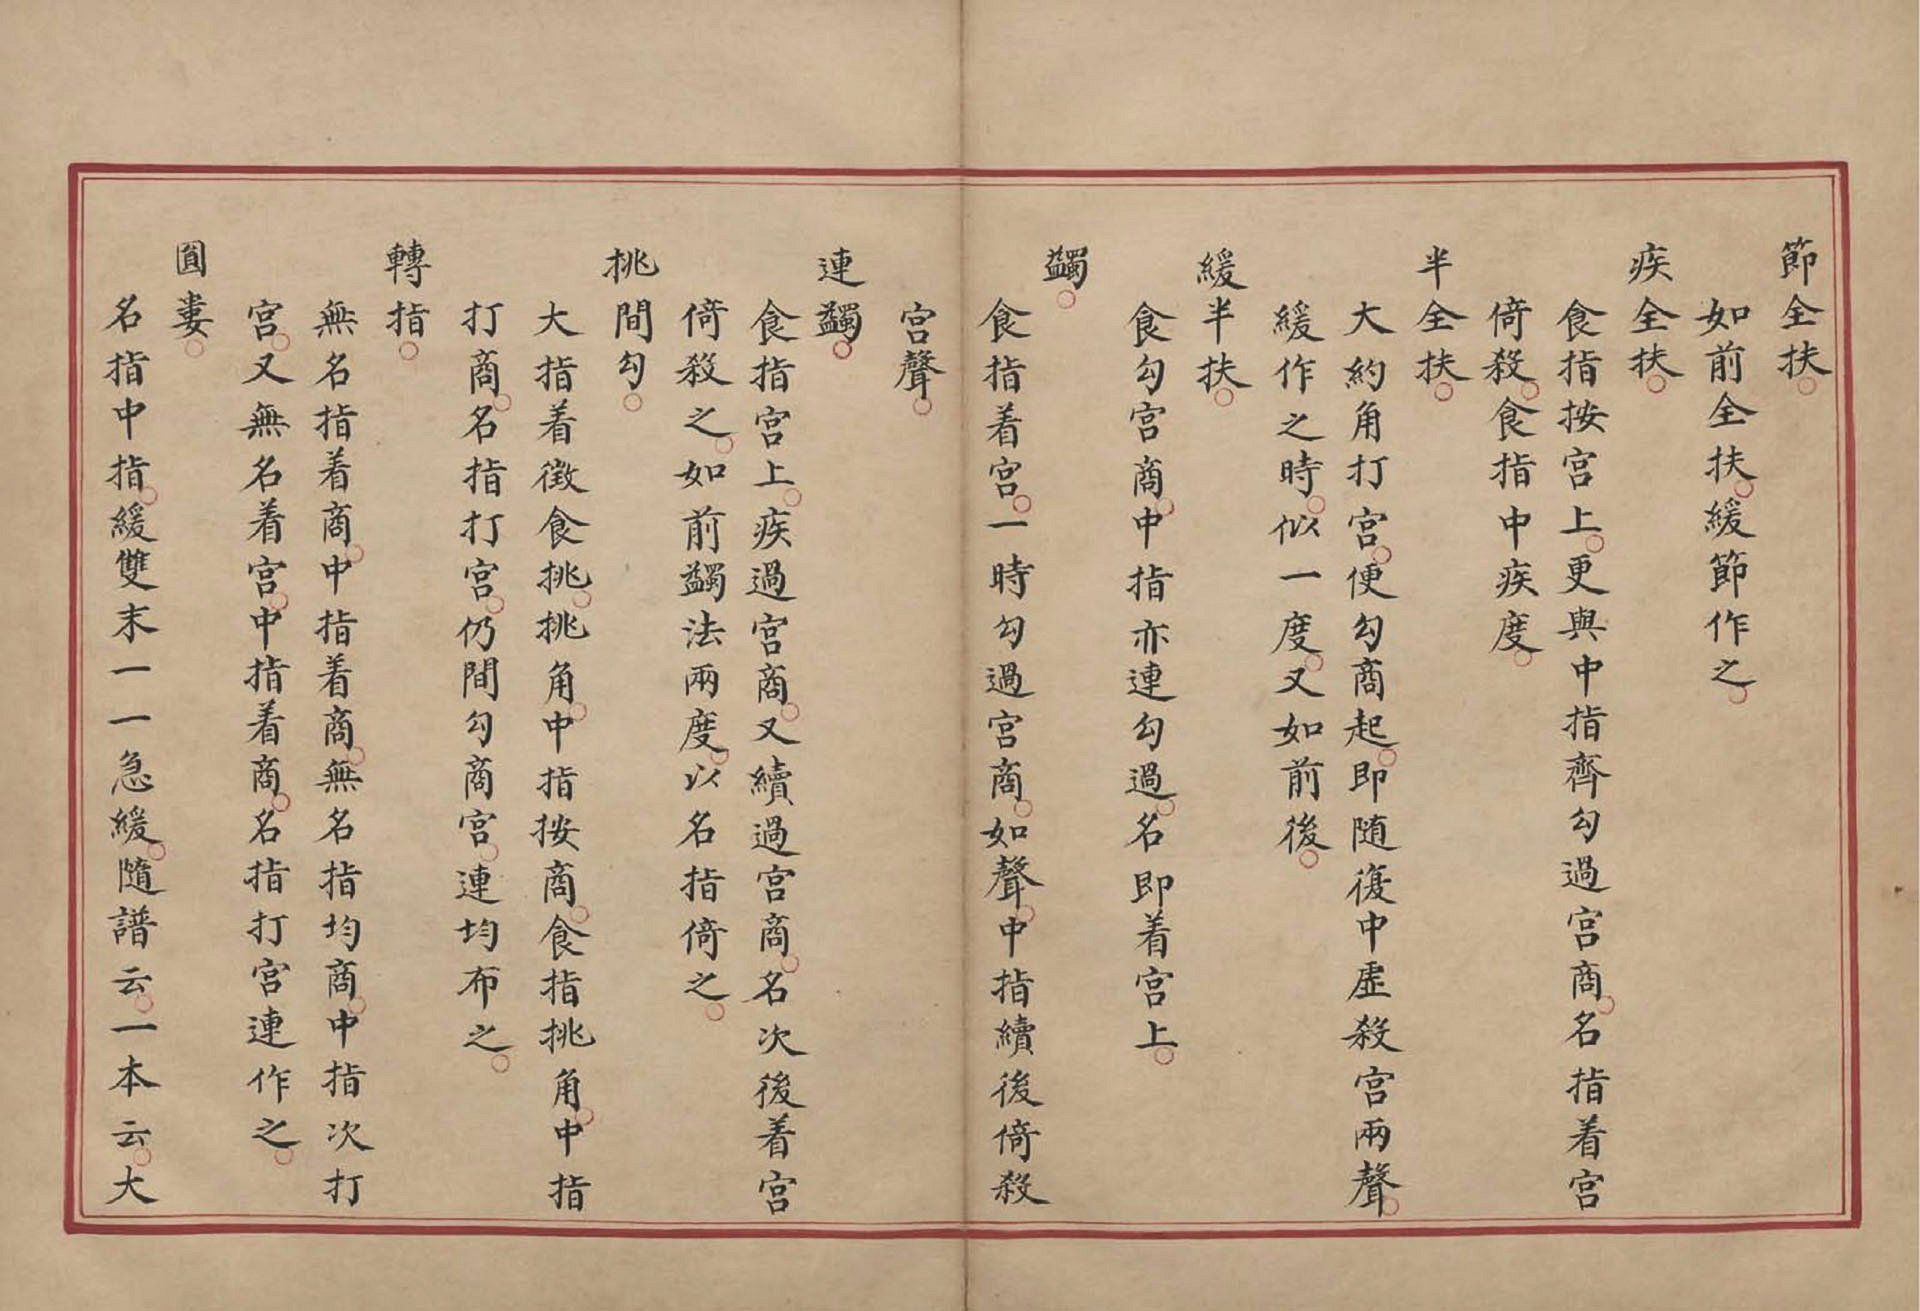 節全扶
如前全扶緩節作之
疾全扶
食指按宫上更與中指齊勾過宫商名指着宫
倚殺食指中疾度
半全扶
大約角打宫便勾商起即随復中虚殺宫兩聲
緩作之時似一度又如前後
緩半扶
食勾宫商中指亦連勾過名即着宫上
蠲
食指着宫一時勾過宫商如聲中指續後倚殺
宫聲
連蠲
食指宫上疾過宫商又續過宫商名次後着宫
倚殺之如前蠲法兩度以名指倚之
挑間勾
大指着徴食挑挑角中指按商食指挑角中指
打商名指打宫仍間勾商宫連均布之
轉指
無名指着商中指着商無名指均商中指次打
宫又無名着宫中指着商名指打宫連作之
圓婁
名指中指緩雙末一一急緩隨譜云一本云大